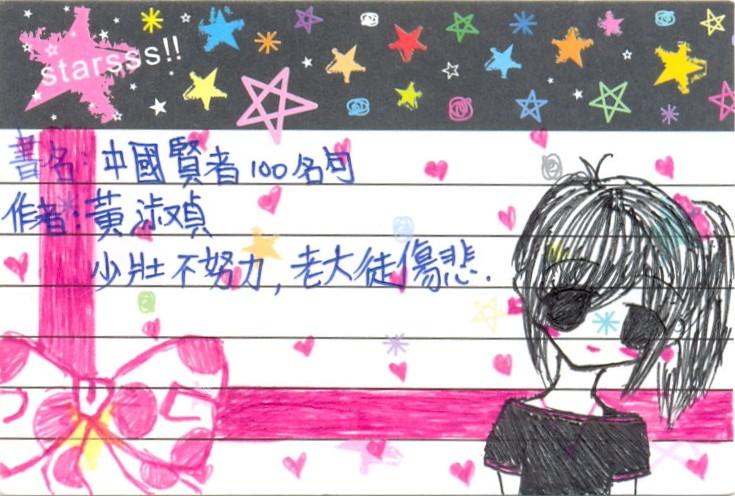 starsss!!
書名:中國賢者100名句
作者:黃淑貞
少壯不努力,老大徒傷悲.